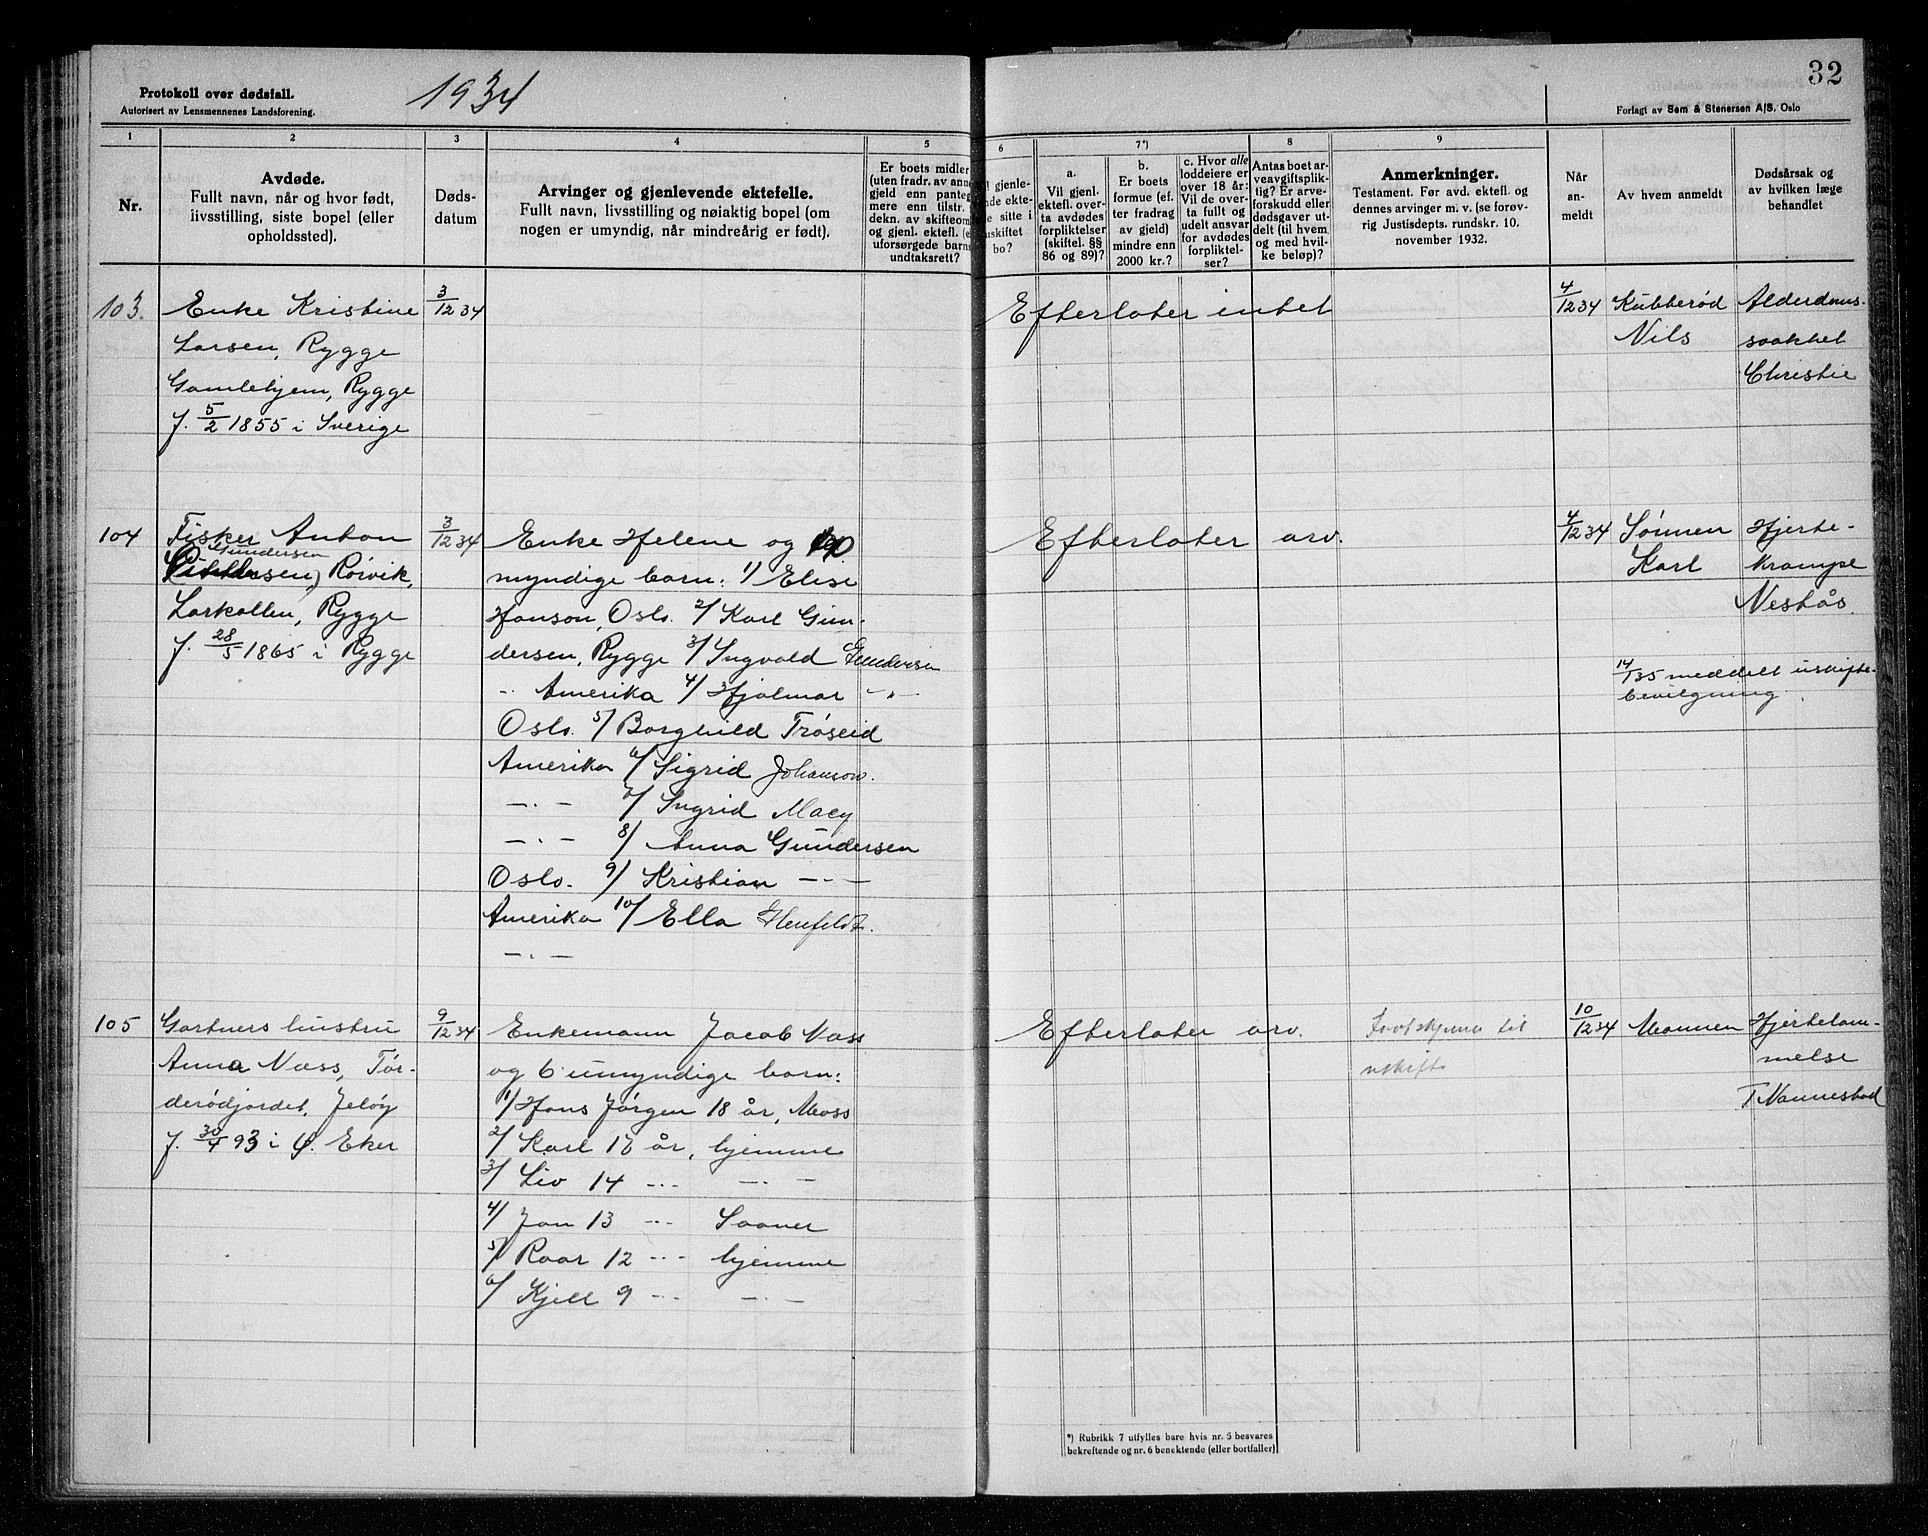 Protokoll over dødsfall.
Autorisert av Lensmennenes Landsforening.
1934
32
Forlagt av Sem & Stenersen A/S. Oslo
1 2 3 4 5 6 7*) 8 9
Nr.
Avdøde.
Fullt navn, når og hvor født,
livsstilling, siste bopel (eller
opholdssted).
Døds-
datum
Arvinger og gjenlevende ektefelle.
Fullt navn, livsstilling og nøiaktig bopel (om
nogen er umyndig, når mindreårig er født).
Er boets midler
(uten fradr. av anne
gjeld enn panteg
mere enn tilstr.
dekn. av skifteom
og gjenl. ektef. (e
uforsørgede barns
undtaksrett?
l gjenle-
nde ekte-
e sitte i
uskiftet
bo?
a.
Vil gjenl.
ektefl. over-
ta avdødes
forpliktelser
(skiftel. §§
86 og 89)?
b.
Er boets
formue (ef.
ter fradrag
av gjeld)
mindre enn
2000 kr.?
c. Hvor alle
loddeiere er
over 18 år:
Vil de over-
ta fullt og
udelt ansvar
for avdødes
forpliktel-
ser?
Antas boet ar-
veavgiftsplik-
tig? Er arve-
forskudd eller
dødsgaver ut-
delt (til hvem
og med hvil-
ke beløp)?
Anmerkninger.
Testament. Før avd. ektefl. og
dennes arvinger m. v. (se forøv-
rig Justisdepts. rundskr. 10.
november 1932.
Når
an-
meldt
Av hvem anmeldt
Dødsårsak og
av hvilken læge
behandlet
103. Enke Kristine 3/12 34 Efterlater intet 4/12 34 Kubberød Alderdoms-
Larsen, Rygge Nils svakhet
Gamlehjem, Rygge Christie
f. 5/2 1855 i Sverige
104 Fisker Anton 3/12 34 Enke Helene og 10 Efterlater arv. 4/12 34 Sønnen Hjerte-
Gundersen
Røivik, myndige barn: 1/ Elise Karl krampe
Larkollen, Rygge Hanson, Oslo. 2/ Karl Gun- Nestås.
f. 28/5 1865 i Rygge dersen, Rygge 3/ Ingvald Gundersen
14/1 35 meddelt uskifte-
-"- Amerika 4/ Hjalmar -"-
bevilgning.
Oslo. 5/ Borghild Trøseid
Amerika 6/ Sigrid Johanson.
-"- 7/ Ingrid Macy
-"- 8/ Anna Gundersen
Oslo. 9/ Kristian -"-
Amerika 10/ Ella
-"-
105 Gartners hustru 9/12 34 Enkemann Jacob Næss Efterlater arv. til 10/12 34 Mannen Hjertelam-
Anna Næss, Tør- og 6 umyndige barn: uskifte melse
derødjordet, Jeløy 1/ Hans Jørgen 18 år, Moss T. Nannestad
f. 30/4 93 i Ø. Eker 2/ Karl 16 år, hjemme
3/ Liv 14 -"- -"-
4/ Jan 13 -"- Saaner
5/ Roar 12 -"- hjemme
6/ Kjell 9 -"- -"-
*) Rubrikk 7 utfylles bare hvis nr. 5 besvares
bekreftende og nr. 6 benektende (eller bortfaller)